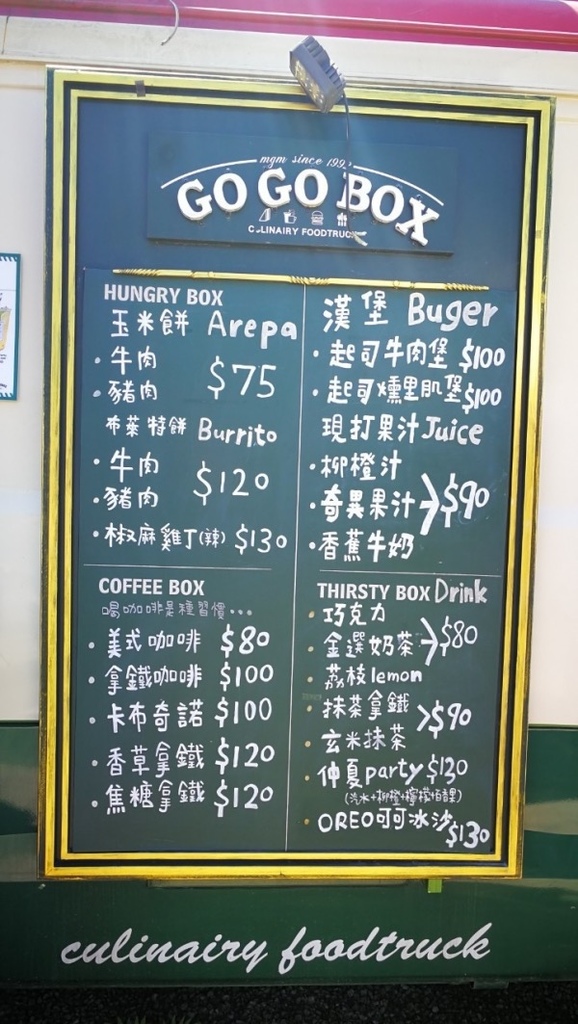 mgm since 199
GO GO BOX
CULINAIRY FOODTRUCK
HUNGRY BOX
玉米餅 Arepa
·牛肉
·豬肉 $75
布萊特餅 Burrito
·牛肉
·豬肉 $120
·椒麻雞丁(辣) $130
漢堡 Buger
·起司牛肉堡 $100
·起司燻里肌堡 $100
現打果汁 Juice
·柳橙汁
·奇異果汁 $90
·香蕉牛奶
COFFEE BOX
喝咖啡是種習慣...
·美式咖啡 $80
·拿鐵咖啡 $100
·卡布奇諾 $100
·香草拿鐵 $120
·焦糖拿鐵 $120
THIRSTY BOX Drink
·巧克力
·金選奶茶 $80
·荔枝lemon
·抹茶拿鐵
·玄米抹茶 $90
·仲夏party $130
(汽水+柳橙+檸檬+百香果)
·OREO可可冰沙 $130
culinairy foodtruck